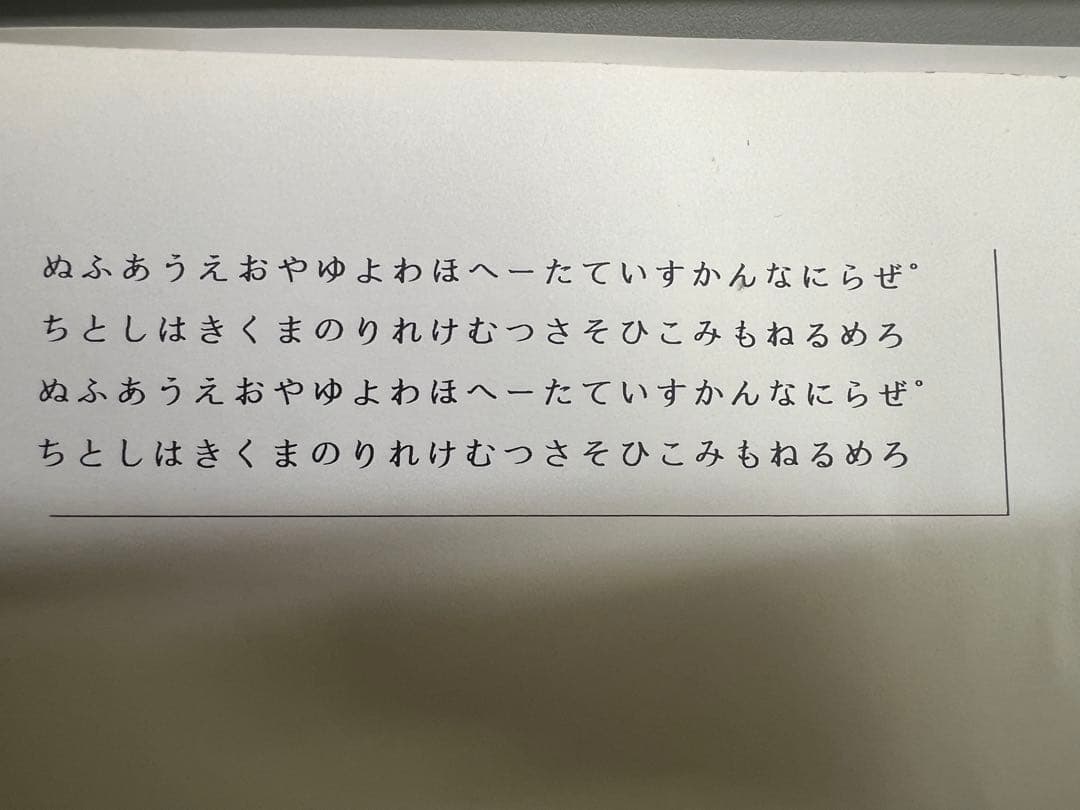 ぬふあうえおやゆよわほへーたていすかんなにらぜ゜
ちとしはきくまのりれけむつさそひこみもねるめろ
ぬふあうえおやゆよわほへーたていすかんなにらぜ゜
ちとしはきくまのりれけむつさそひこみもねるめろ